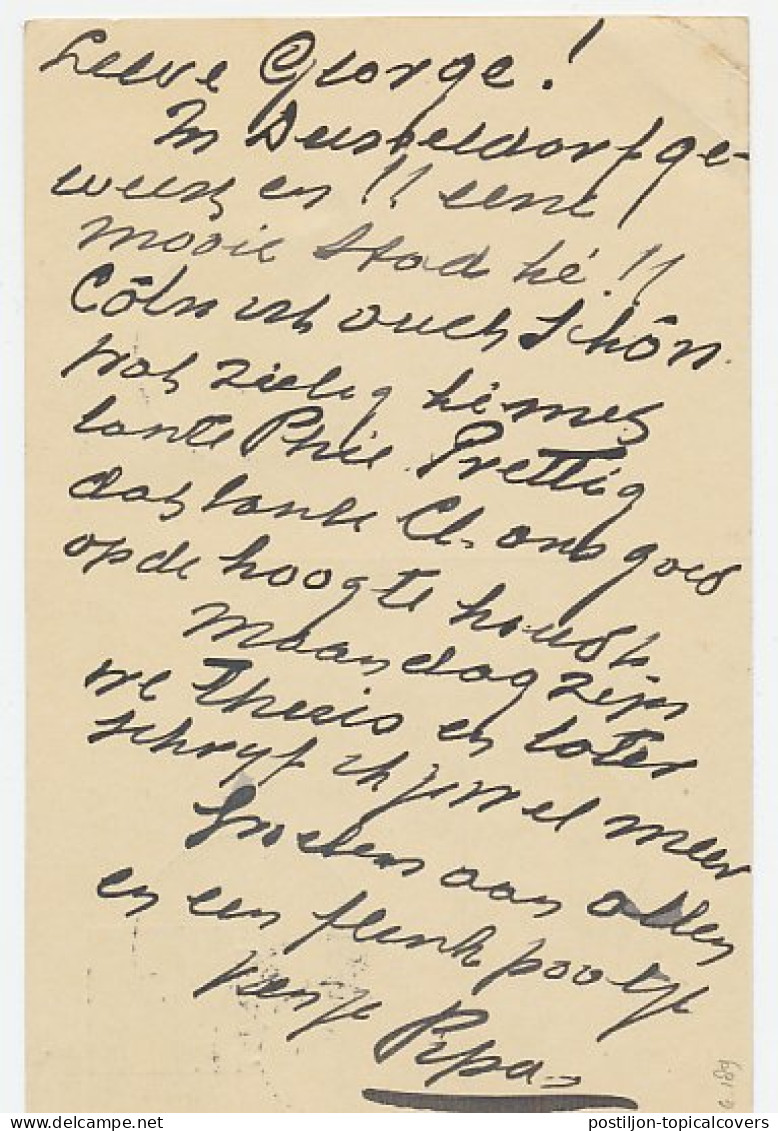 Lieve George!
In Dusseldorf ge-
weest en!! eene
mooie stad hé!!
Cöln ist auch schön.
Wat zielig hé met
tante Phie. Prettig
dat tante Cl. ons goed
op de hoogte houdt.
Maandag zijn
we thuis en later
schryf ik je wel meer
Groeten aan allen
en een flink pootje
van je
Papa
G.189
postiljon-topicalcovers